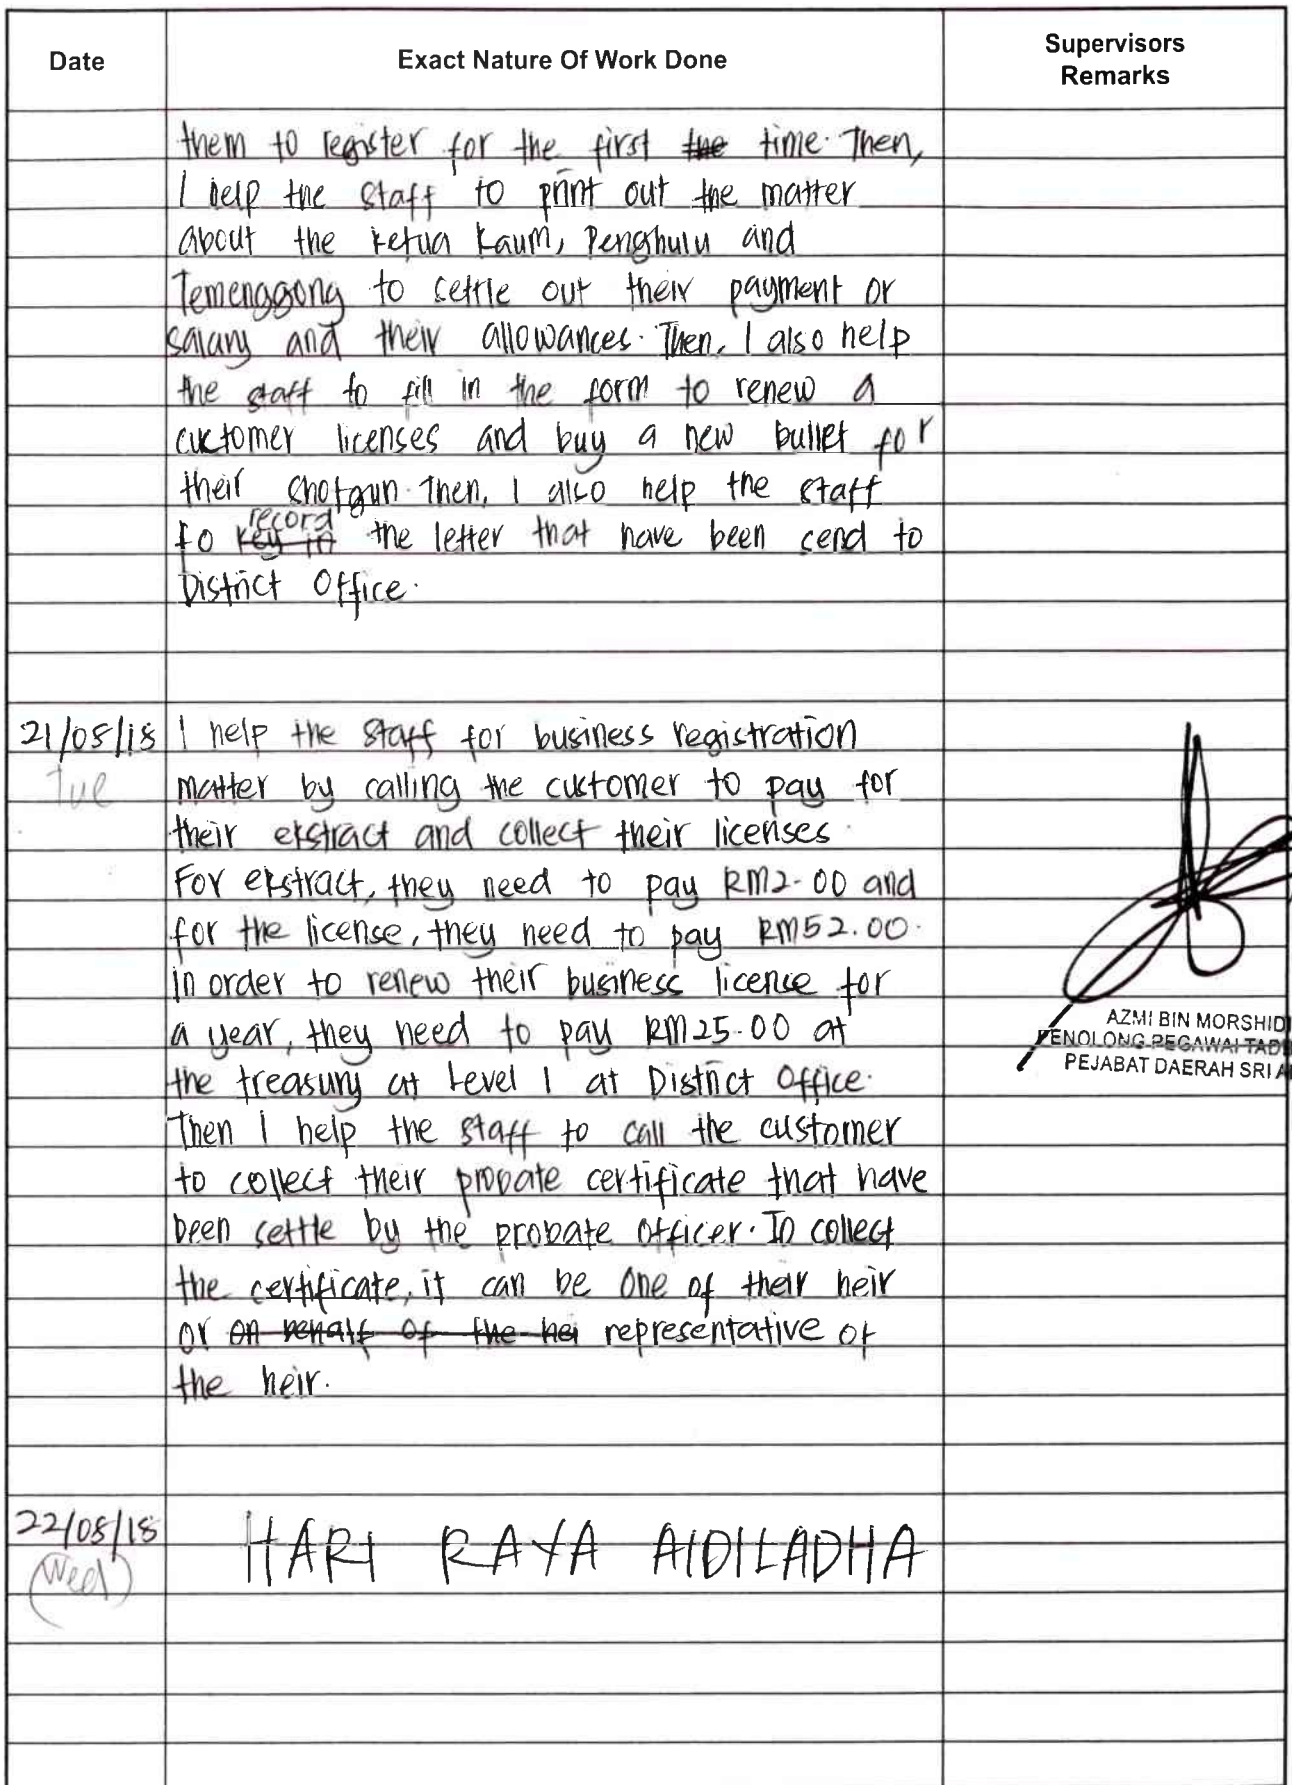 Date Exact Nature Of Work Done Supervisors
Remarks
them to register for the first the time. Then,
I help the staff to print out the matter
about the Ketua Kaum, Penghulu and
Temenggong to settle out their payment or
salary and their allowances. Then, I also help
the staff to fill in the form to renew a
customer licenses and buy a new bullet for
their shotgun. Then, I also help the staff
record
to key in the letter that have been send to
District Office.
21/08/18 I help the staff for business registration
Tue matter by calling the customer to pay for
their ekstract and collect their licenses.
For ekstract, they need to pay RM2.00 and
for the license, they need to pay RM52.00.
In order to renew their business license for
a year, they need to pay RM25.00 at
the treasury at Level 1 at District Office.
Then I help the staff to call the customer
to collect their probate certificate that have
been settle by the probate officer. To collect
the certificate, it can be one of their heir
or on behalf of the hei representative of
the heir.
AZMI BIN MORSHIDI
PENOLONG PEGAWAI TAD
PEJABAT DAERAH SRI A
22/08/18 HARI RAYA AIDILADHA
(Wed)